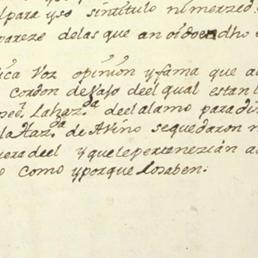 para y so sin titulo ni merzed
pareze de las que an oido en dho
ica Voz opinion y fama que a
cordon de Vajo de el qual estan
La haz.da de el alamo para
la Haz.da de Avino se quedaron
fuera de el y que le pertenezian a
o como y porque lo saben.